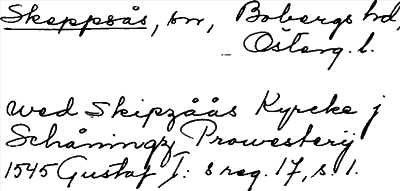 Skeppsås, sn, Bobergs hd,
Österg. l.
wed Skipzåås Kyrcke j
Schåningz Prowesterij
1545 Gustaf I: s reg. 17, s. 1.